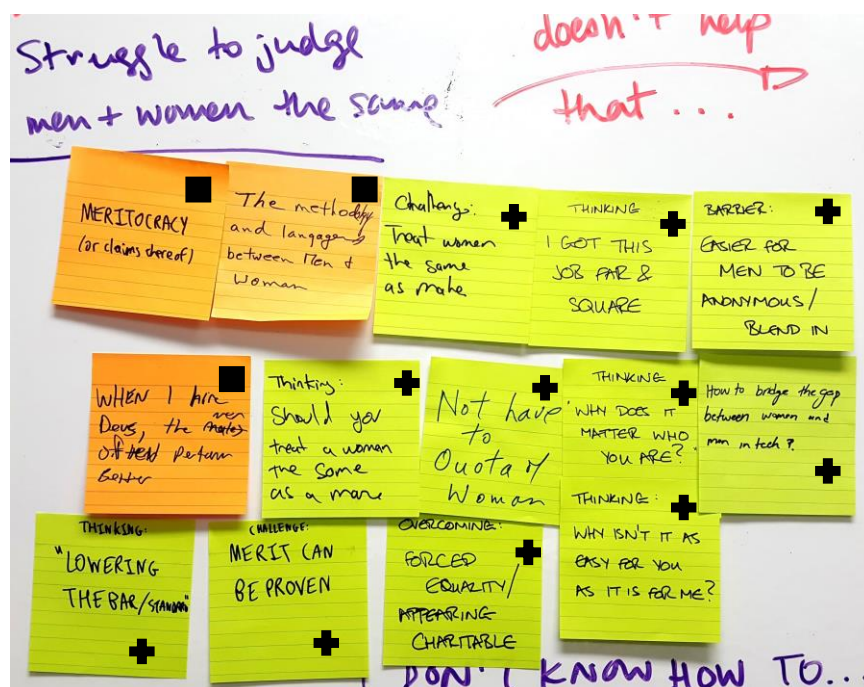 Struggle to judge
men + women the same
doesn't help
that...
MERITOCRACY
(or claims thereof)
The methodology
and langages
between Men &
Woman
Challenge:
Treat women
the same
as make
THINKING
I GOT THIS
JOB FAR &
SQUARE
BARRIER:
EASIER FOR
MEN TO BE
ANONYMOUS/
BLEND IN
WHEN I hire
Devs, the men
often perform
better
Thinking:
Should you
treat a women
the same
as a mane
Not have
to
Quota of
Woman
THINKING
WHY DOES IT
MATTER WHO
YOU ARE?
How to bridge the gap
between women and
man in tech?
THINKING:
"LOWERING
THE BAR/STANDARD"
CHALLENGE:
MERIT CAN
BE PROVEN
OVERCOMING:
FORCED
EQUALITY/
APPEARING
CHARITABLE
THINKING:
WHY ISN'T IT AS
EASY FOR YOU
AS IT IS FOR ME?
DON'T KNOW HOW TO...